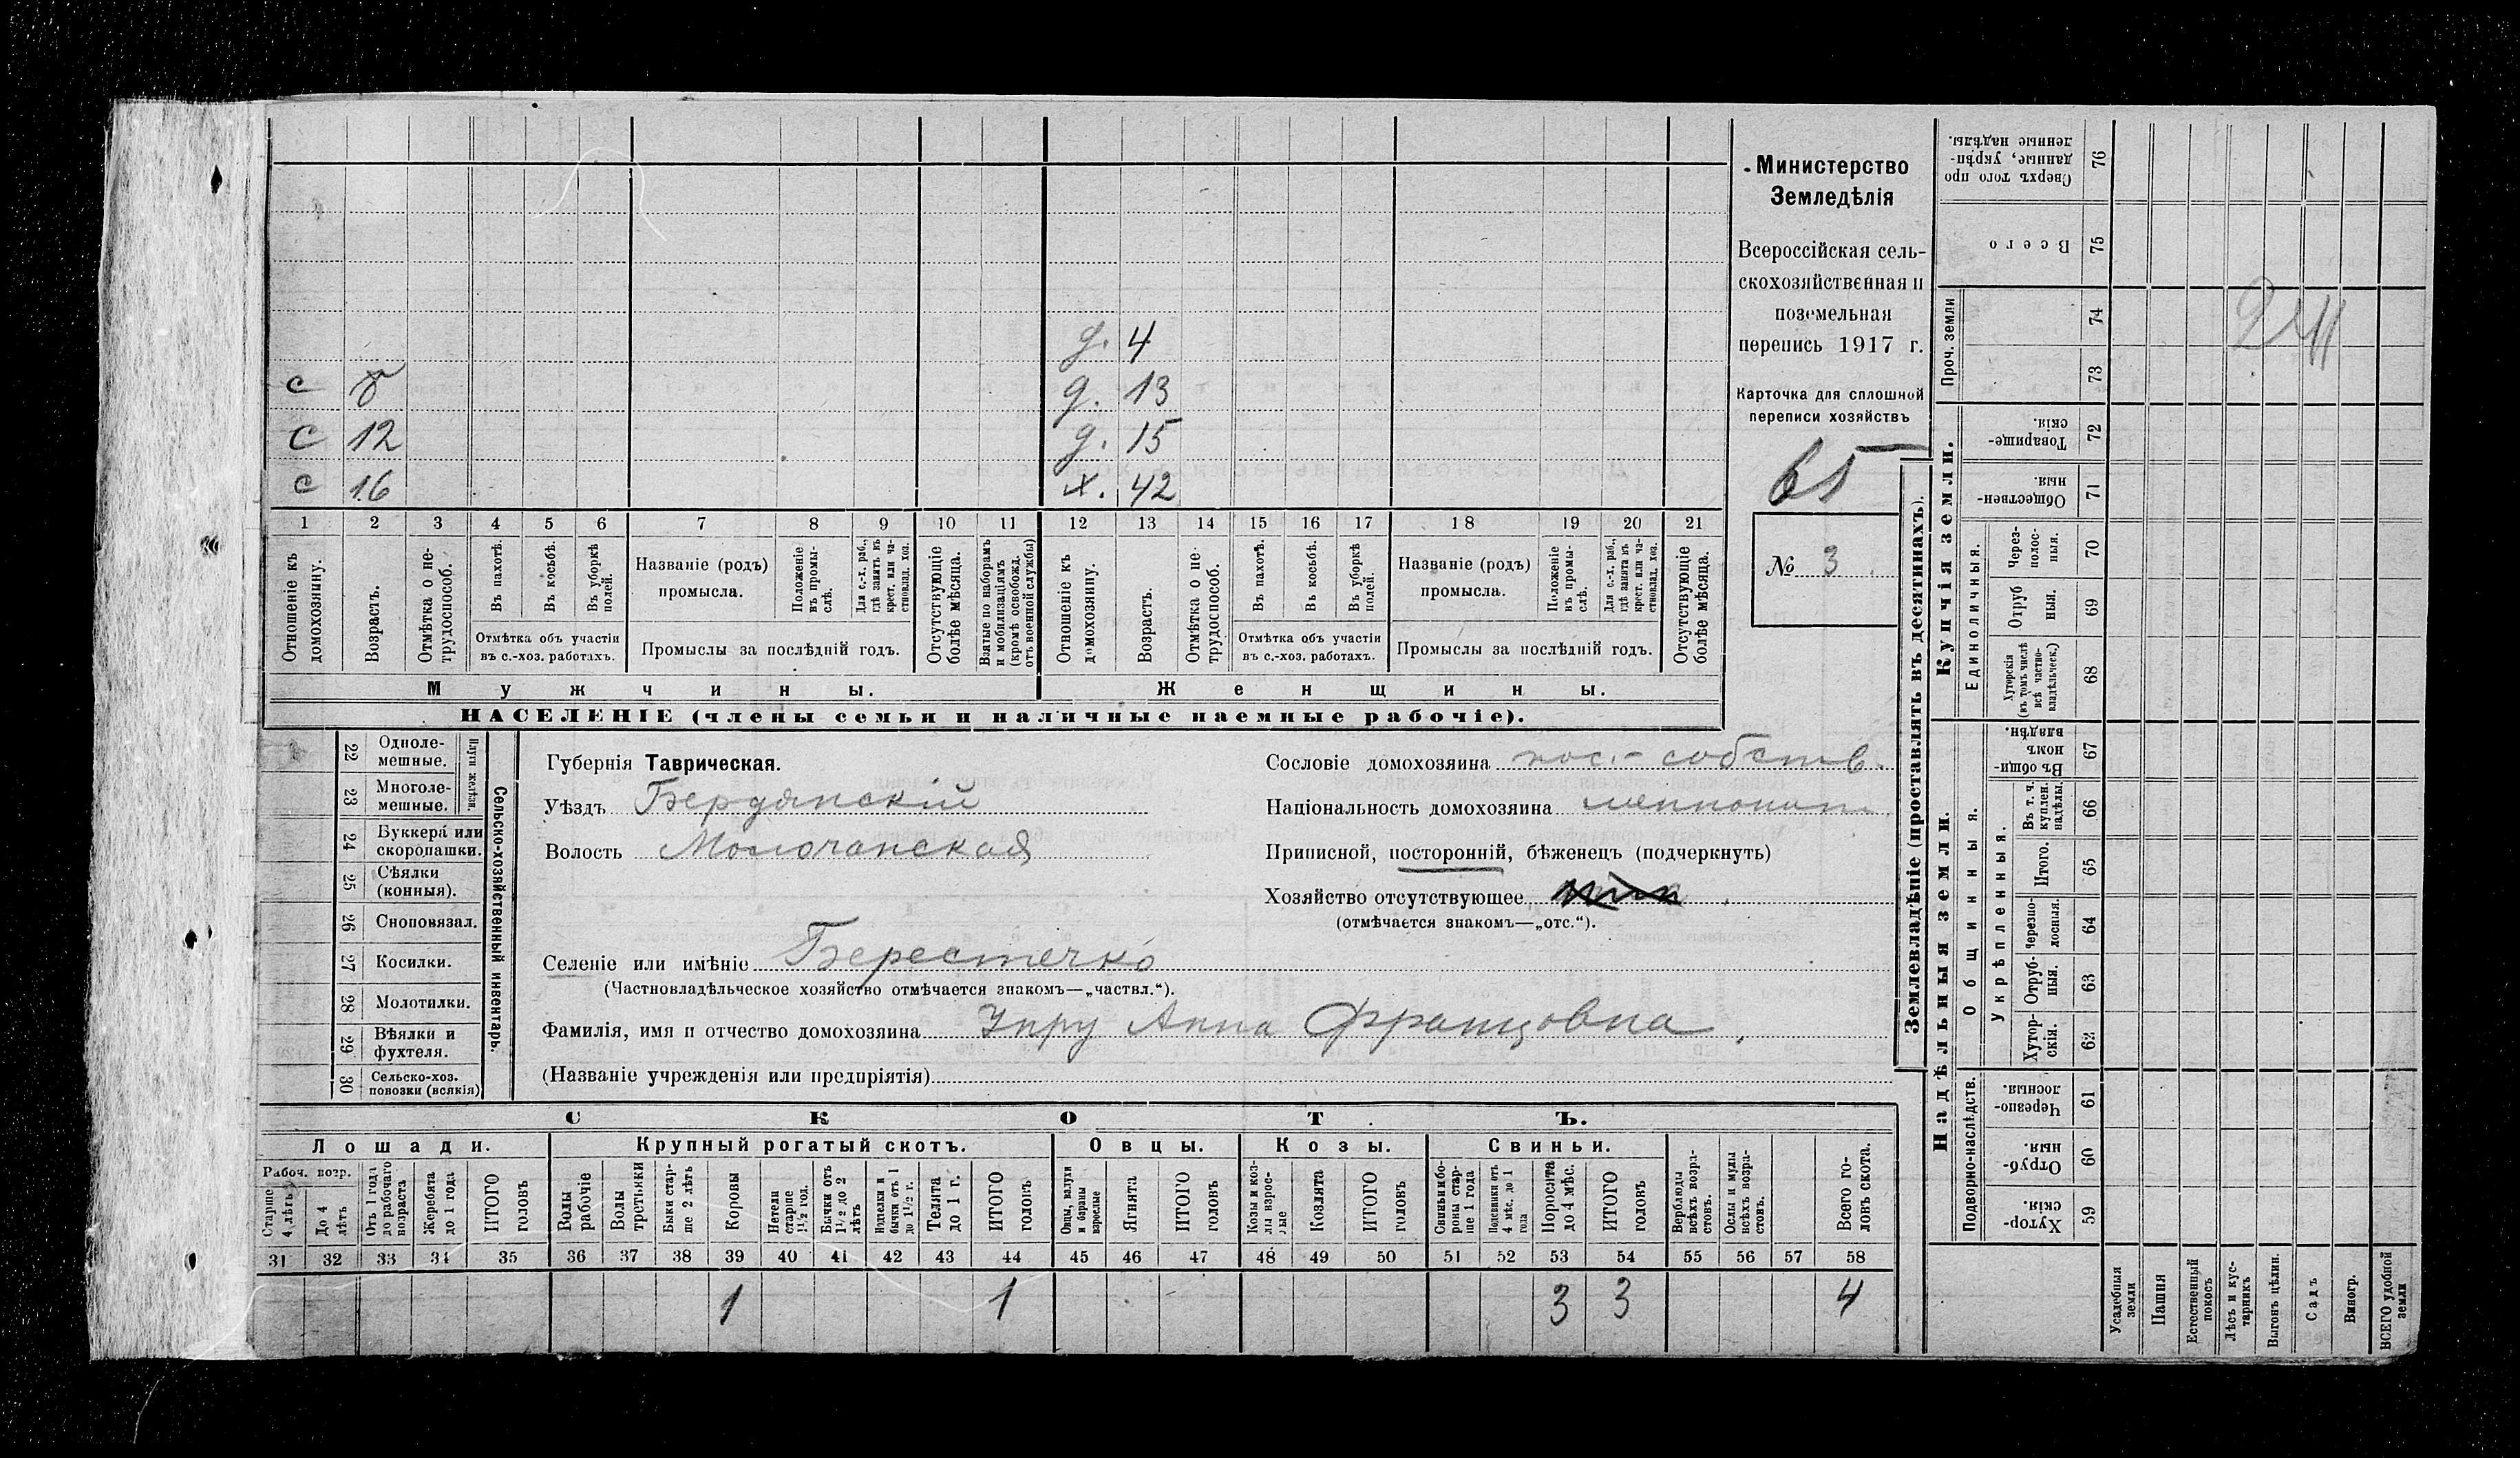 д. 4
с 8 д. 13
с 12 д. 15
с 16 х. 42
1 2 3 4 5 6 7 8 9 10 11 12 13 14 15 16 17 18 19 20 21
Отношеніе къ домохозяину.
Возрастъ.
Отмѣтка о не-трудоспособ.
Въ пахотѣ.
Въ косьбѣ.
Въ уборкѣ полей.
Отмѣтка объ участіи
въ с.-хоз. работахъ.
Названіе (родъ)
промысла.
Положеніе въ промы-слѣ.
Для с.-х. раб., гдѣ занятъ въ крест. или ча-стновлад. хоз.
Промыслы за послѣдній годъ.
Отсутствующіе болѣе мѣсяца.
Взятые по наборамъ и мобилизаціямъ (кромѣ освобожд. отъ военной службы)
Отношеніе къ домохозяину.
Возрастъ.
Отмѣтка о не-трудоспособ.
Въ пахотѣ.
Въ косьбѣ.
Въ уборкѣ полей.
Отмѣтка объ участіи
въ с.-хоз. работахъ.
Названіе (родъ)
промысла.
Положеніе въ промы-слѣ.
Для с.-х. раб., гдѣ занята въ крест. или ча-стновлад. хоз.
Промыслы за послѣдній годъ.
Отсутствующіе болѣе мѣсяца.
Мужчины. Женщины.
НАСЕЛЕНІЕ (члены семьи и наличные наемные рабочіе).
Министерство
Земледѣлія
Всероссійская сель-
скохозяйственная и
поземельная
перепись 1917 г.
Карточка для сплошной
переписи хозяйствъ
65
№ 3
22 Одноле-мешные.
23 Многоле-мешные.
Плуги желѣзн.
24 Буккера или скоропашки.
25 Сѣялки (конныя).
26 Сноповязал.
27 Косилки.
28 Молотилки.
29 Вѣялки и фухтеля.
30 Сельско-хоз. повозки (всякія)
Сельско-хозяйственный инвентарь.
Губернія Таврическая.
Уѣздъ Бердянскій
Волость Молочанская
Сословіе домохозяина пос.- собств.
Національность домохозяина меннонит.
Приписной, посторонній, бѣженецъ (подчеркнуть)
Хозяйство отсутствующее
(отмѣчается знакомъ—„отс.“).
Селеніе или имѣніе Берестечко
(Частновладѣльческое хозяйство отмѣчается знакомъ—„частвл.“).
Фамилія, имя и отчество домохозяина Унру Анна Францовна
(Названіе учрежденія или предпріятія)
СКОТЪ.
Лошади. Крупный рогатый скотъ. Овцы. Козы. Свиньи.
Рабоч. возр.
Старше 4 лѣтъ
До 4 лѣтъ
Отъ 1 года до рабочаго возраста
Жеребята до 1 года
ИТОГО головъ
Волы рабочіе
Волы третьяки
Быки стар-ше 2 лѣтъ
Коровы
Нетели старше 1½ год.
Бычки отъ 1½ до 2 лѣтъ
бычки отъ 1 до 1½ г.
Телята до 1 г.
ИТОГО головъ
Овцы, валухи и бараны взрослые
Ягнята
ИТОГО головъ
Козы и коз-лы взрос-лые
Козлята
ИТОГО головъ
Свиньи и бо-ровы стар-ше 1 года
Подсвинки отъ 4 мѣс. до 1 года
Поросята до 4 мѣс.
ИТОГО головъ
Верблюды всѣхъ возра-стовъ.
Ослы и мулы всѣхъ возра-стовъ.
Всего го-ловъ скота.
31 32 33 34 35 36 37 38 39 40 41 42 43 44 45 46 47 48 49 50 51 52 53 54 55 56 57 58
1 1 3 3 4
Землевладѣніе (проставлять въ десятинахъ).
Сверхъ того про данные, укрѣп-ленные надѣлы. 76
Всего 75
Проч. земли
74
73
Купчія земли.
Товарище-скія. 72
Обществен-ныя. 71
Единоличныя.
Через-полос-ныя. 70
Отруб ныя. 69
Хуторскія (въ томъ числѣ всѣ частно-владѣльческ.) 68
Надѣльныя земли.
Общинныя.
Въ общи-номъ владѣн. 67
Укрѣпленныя.
Въ т. ч. куплен. надѣлы. 66
Итого. 65
Черезпо-лосныя. 64
Отруб-ныя. 63
Хутор-скія. 62
Подворно-наслѣдств.
Черезпо-лосныя. 61
Отруб-ныя. 60
Хутор-скія. 59
Усадебныя земли
Пашня
Естественный покосъ
Лѣсъ и кус-тарникъ
Выгонъ цѣлин.
Садъ
Виногр.
ВСЕГО удобной земли